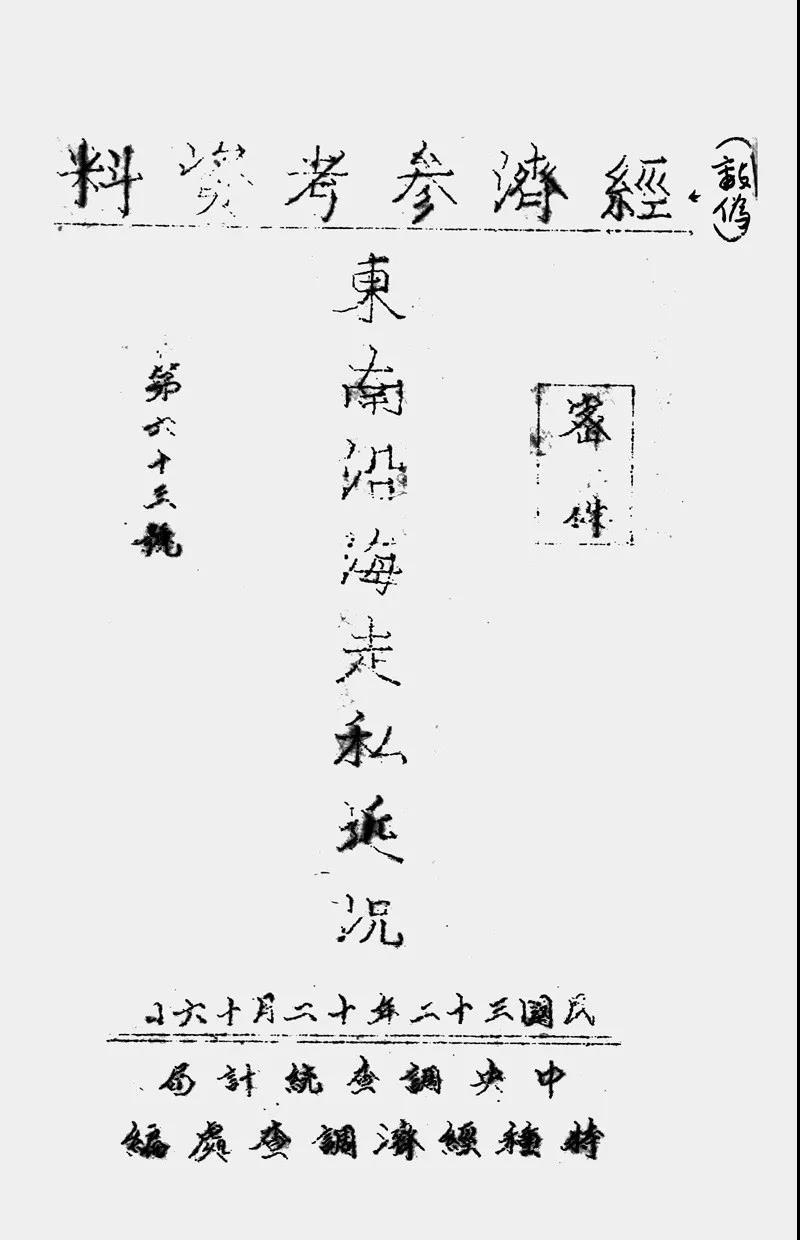 (敵偽)
經濟參考資料
密件
東南沿海走私近況
第六十三號
民國三十二年十二月十六日
中央調查統計局
特種經濟調查處編